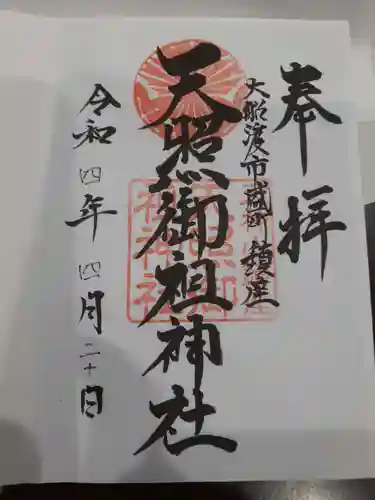 奉拝
大船渡市盛町鎮座
天照御祖神社
令和四年四月二十日